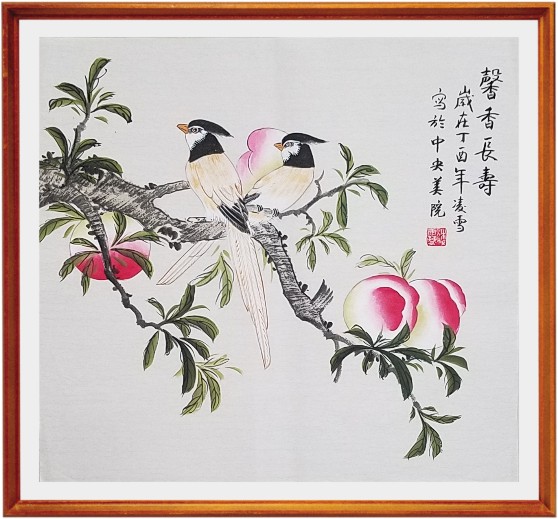 馨香長壽
歲在丁酉年凌雪
寫於中央美院